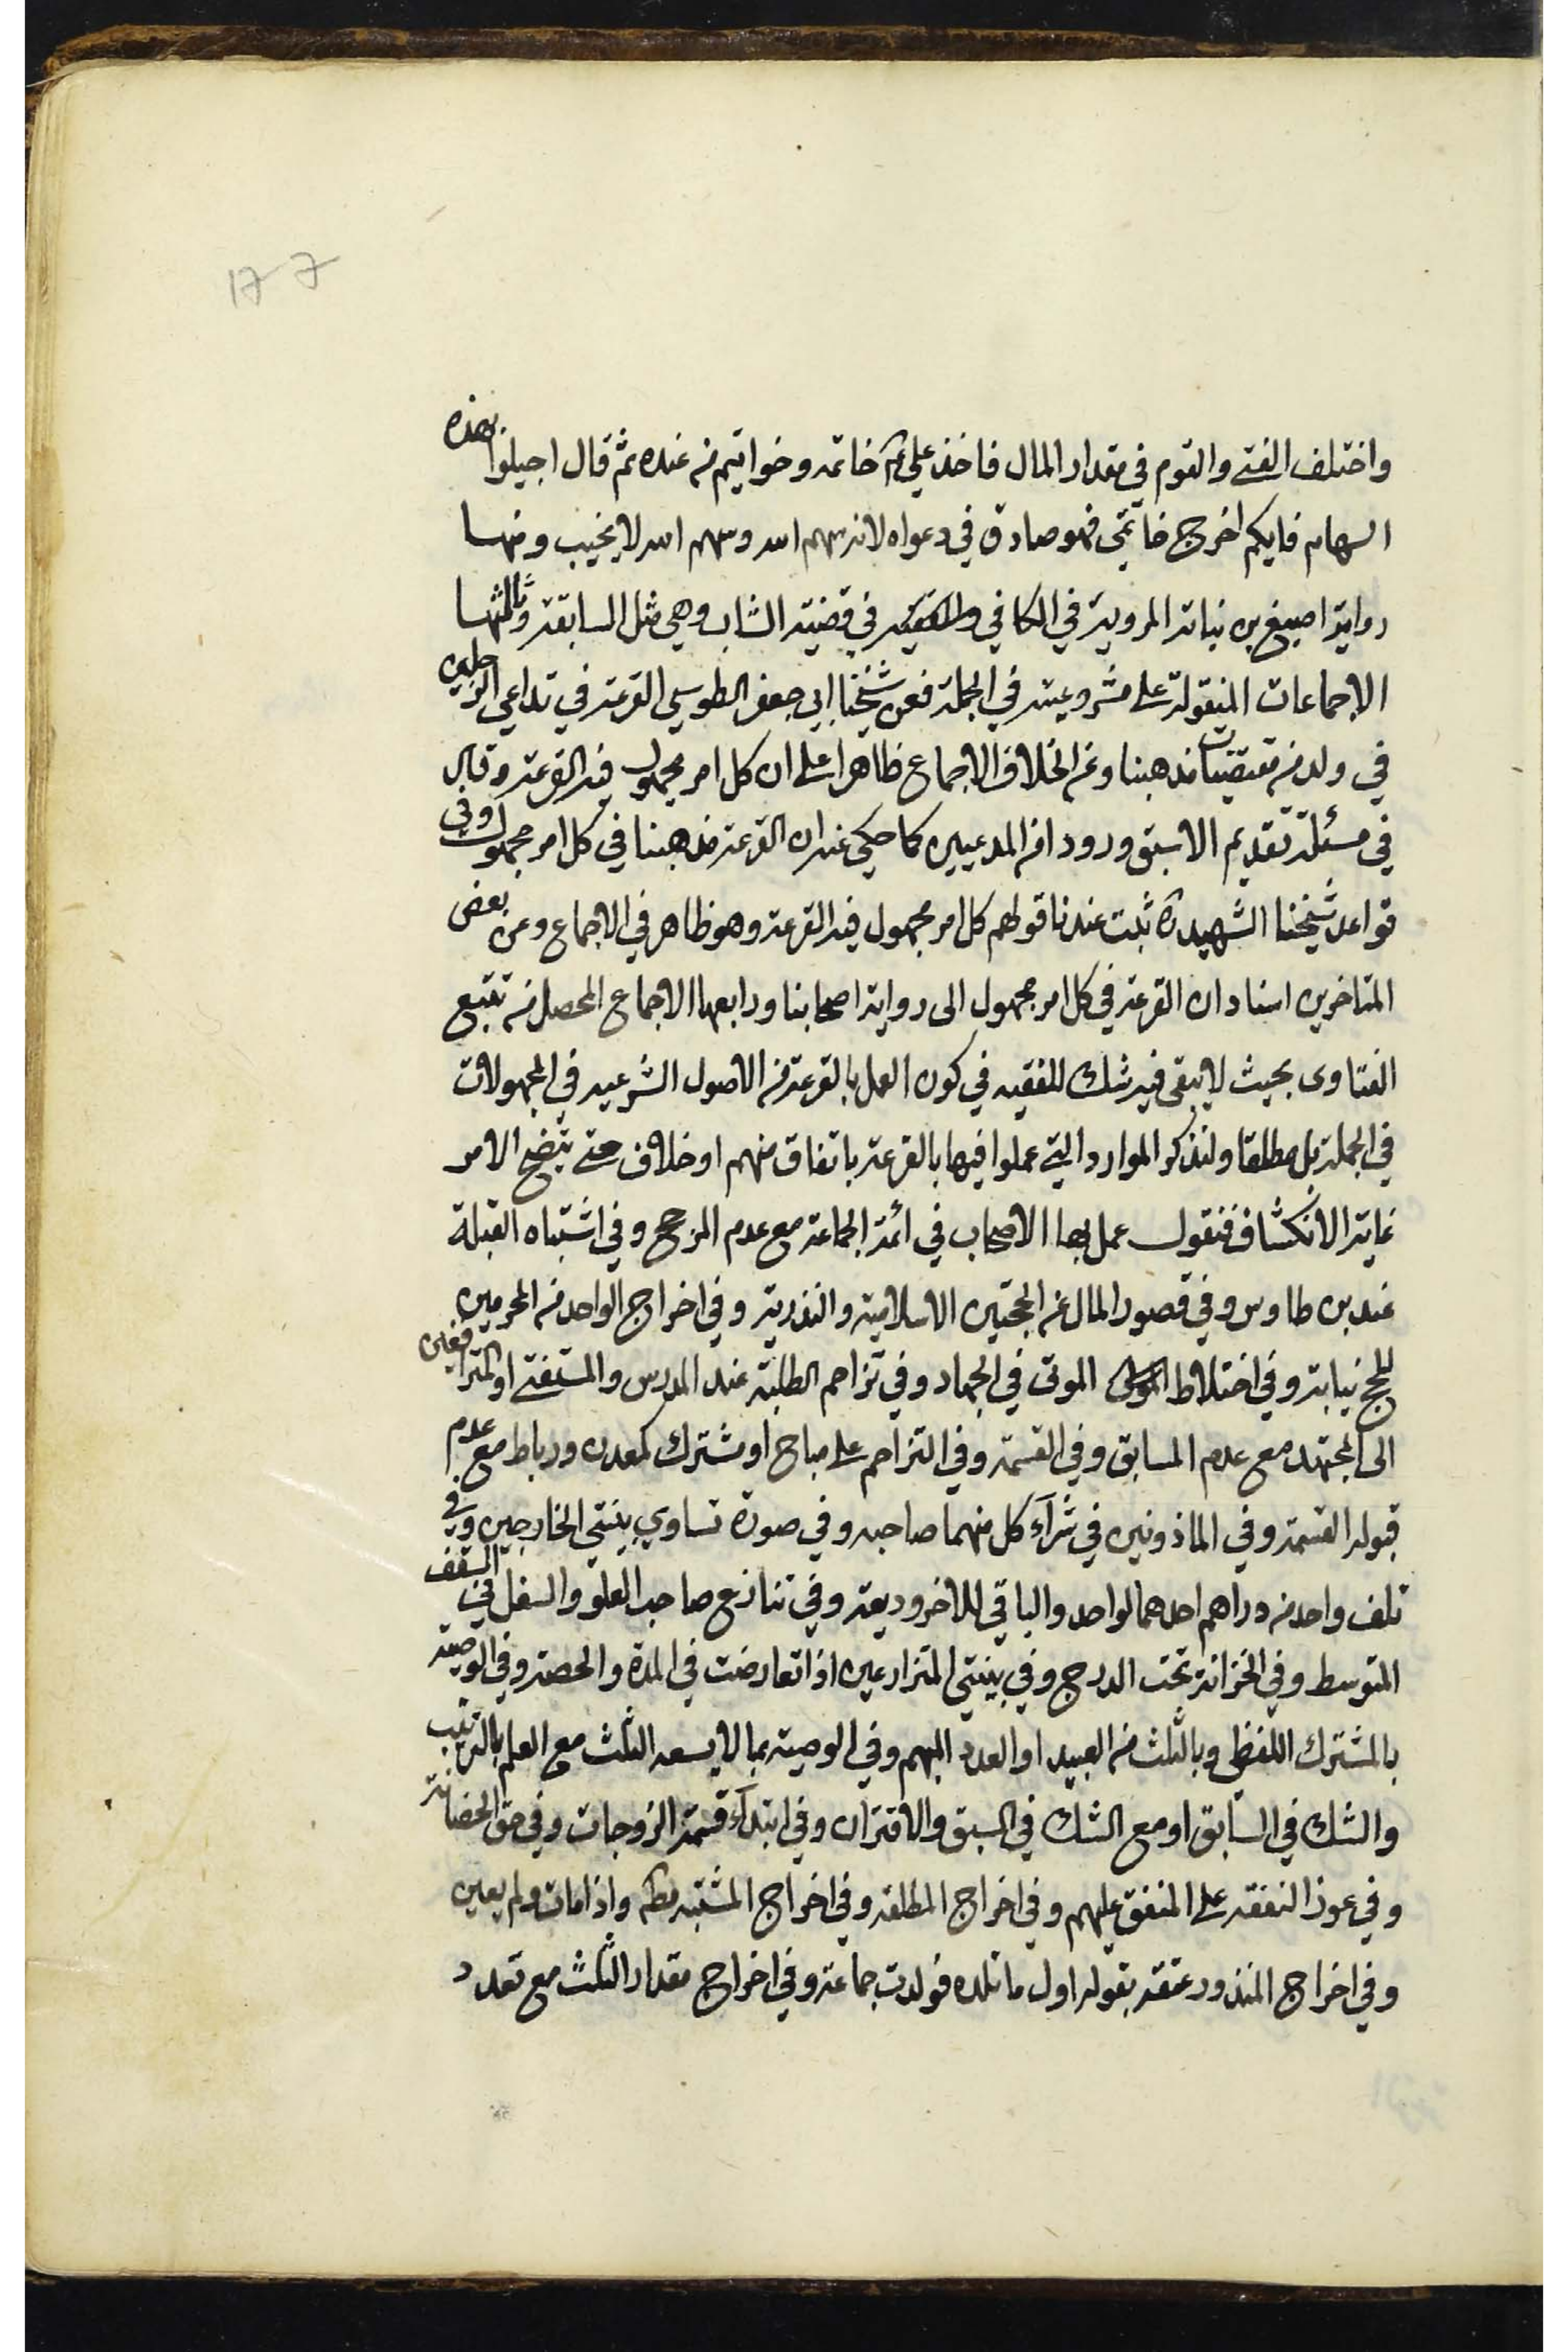 177
واختلف الفتى والقوم في مقدار المال فاخذ علي ع خاتمه وخواتيم من عنده ثم قال اجيلوا بهذه
السهام فايكم اخرج خاتمي فهو صادق في دعواه لانه سهم الله وسهم الله لا يخيب ومنها
رواية اصبغ بن نباته المروية في الكافي والفقيه في قضية الشاب وهي مثل السابقة وثالثها
الاجماعات المنقولة على مشروعيته في الجملة فعن شيخنا ابي جعفر الطوسي القرعة في تداعي الرجلين
في ولد من مقتضيات مذهبنا وعن الخلاف الاجماع ظاهرا على ان كل امر مجهول فيه القرعة وقال
في مسئلة تقديم الاسبق ورودا من المدعيين كما حكي عنه ان القرعة مذهبنا في كل امر مجهول وفي
قواعد شيخنا الشهيد ره ثبت عندنا قولهم كل امر مجهول فيه القرعة وهو ظاهر في الاجماع وعن بعض
المتاخرين اسناد ان القرعة في كل امر مجهول الى رواية اصحابنا ورابعها الاجماع المحصل من تتبع
الفتاوى بحيث لا يبقى فيه شك للفقيه في كون العمل بالقرعة من الاصول الشرعيه في المجهولات
في الجملة بل مطلقا ولنذكر الموارد التي عملوا فيها بالقرعة باتفاق منهم او خلاف حتى يتضح الامر
غاية الانكشاف فنقول عمل بها الاصحاب في ائمة الجماعة مع عدم المرجح وفي اشتباه القبلة
عند بن طاوس وفي قصور المال عن الحجتين الاسلامية والنذرية وفي اخراج الواحد من المحرمين
للحج نيابة وفي اختلاط الموتى في الجهاد وفي تزاحم الطلبة عند المدرس والمستفتي او المترافعين
الى المجتهد مع عدم المسابق وفي القسمة وفي التزاحم على مباح او مشترك كمعدن ورباط مع عدم
قبوله القسمة وفي الماذونين في شرآء كل منهما صاحبه وفي صورة تساوي بينتي الخارجين وفي
تلف واحد من دراهم احدهما لواحد والباقي للاخر وديعة وفي تنازع صاحب العلو والسفل في السقف
المتوسط وفي الخزانة تحت الدرج وفي بينتي المتزارعين اذا تعارضت في المدة والحصة وفي الوصية
بالمشترك اللفظي وبالثلث من العبيد او العدد المبهم وفي الوصية بما لا يسعه الثلث مع العلم بالترتيب
والشك في السابق او مع الشك في السبق والاقتران وفي ابتدآء قسمة الزوجات وفي حق الحضانة
وفي عوز النفقة على المنفق عليهم وفي اخراج المطلقه وفي اخراج المشتبه واذا مات ولم يعين
وفي اخراج المنذور عتقه بقوله اول ما تلده فولدت جماعة وفي اخراج مقدار الثلث مع تعدد